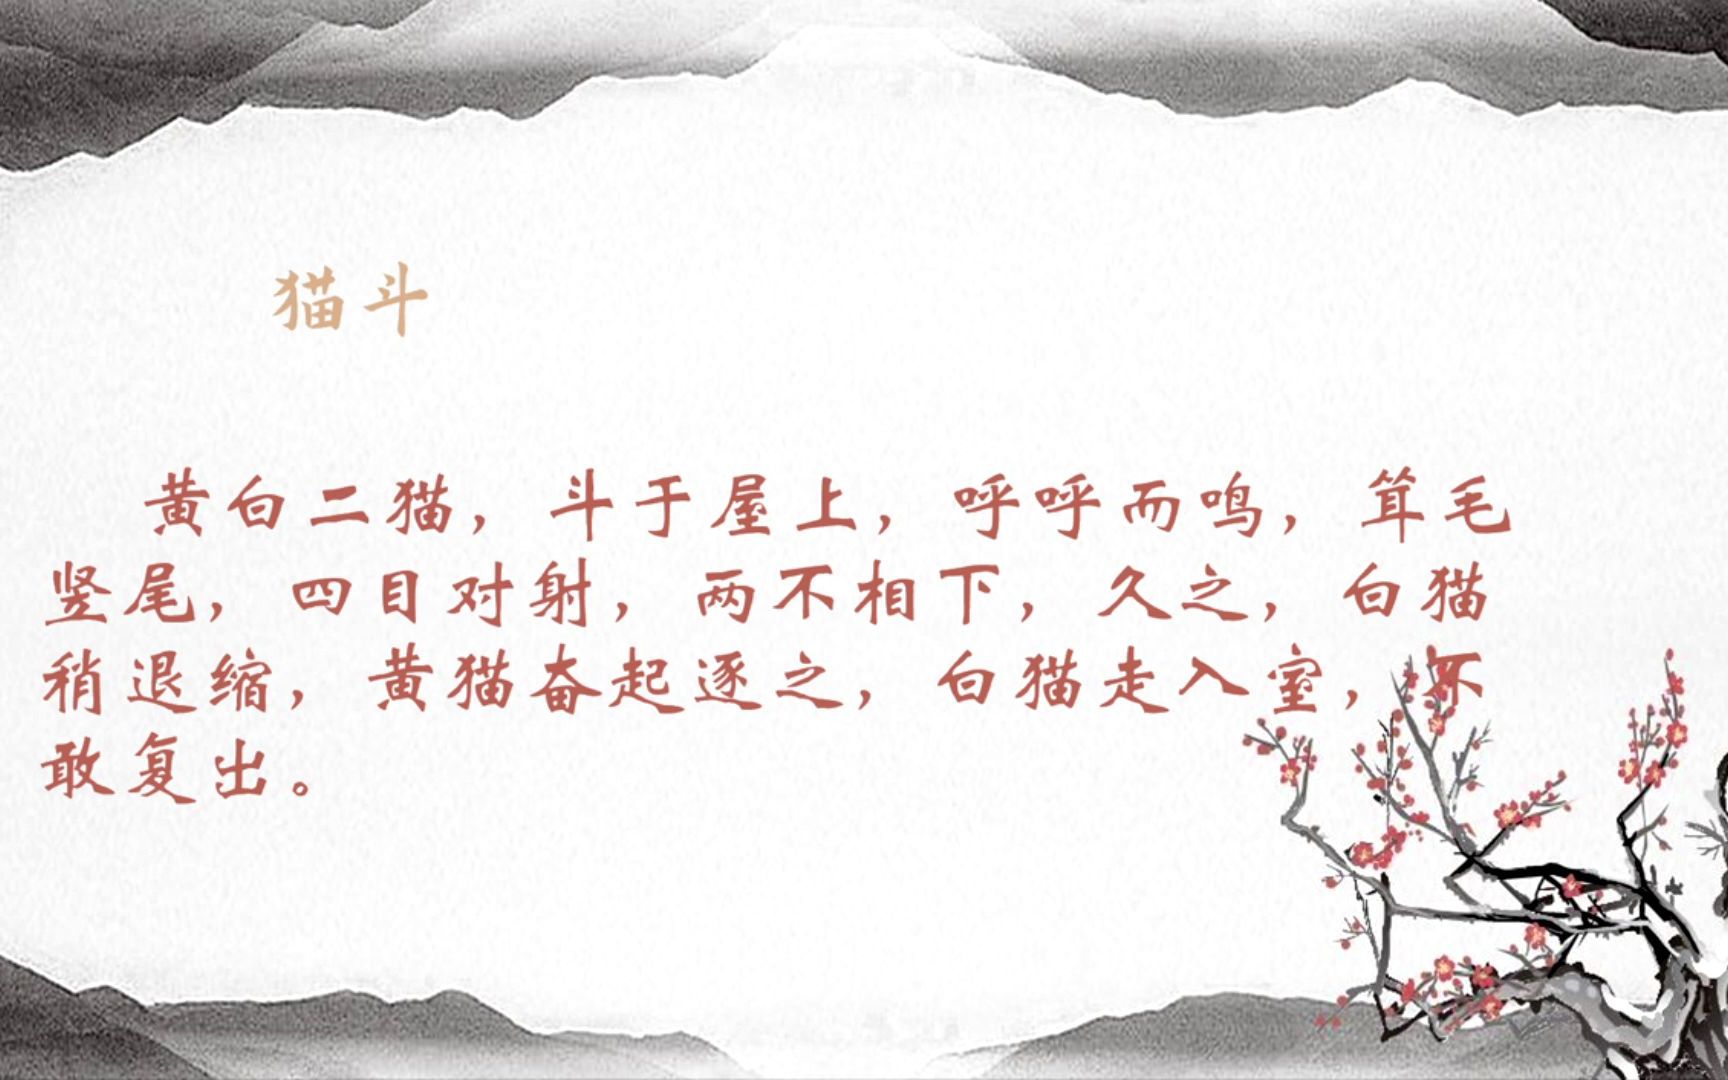 猫斗
黄白二猫，斗于屋上，呼呼而鸣，耸毛
竖尾，四目对射，两不相下，久之，白猫
稍退缩，黄猫奋起逐之，白猫走入室，不
敢复出。